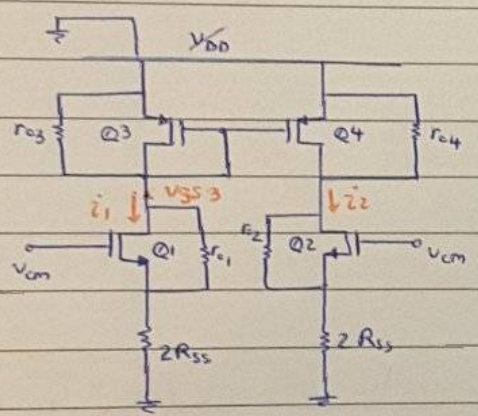 VDD
ro3 Q3 Q4 ro4
i1 vgs3 i2
Q1 ro1 r2 Q2
vcm vcm
2Rss 2Rss